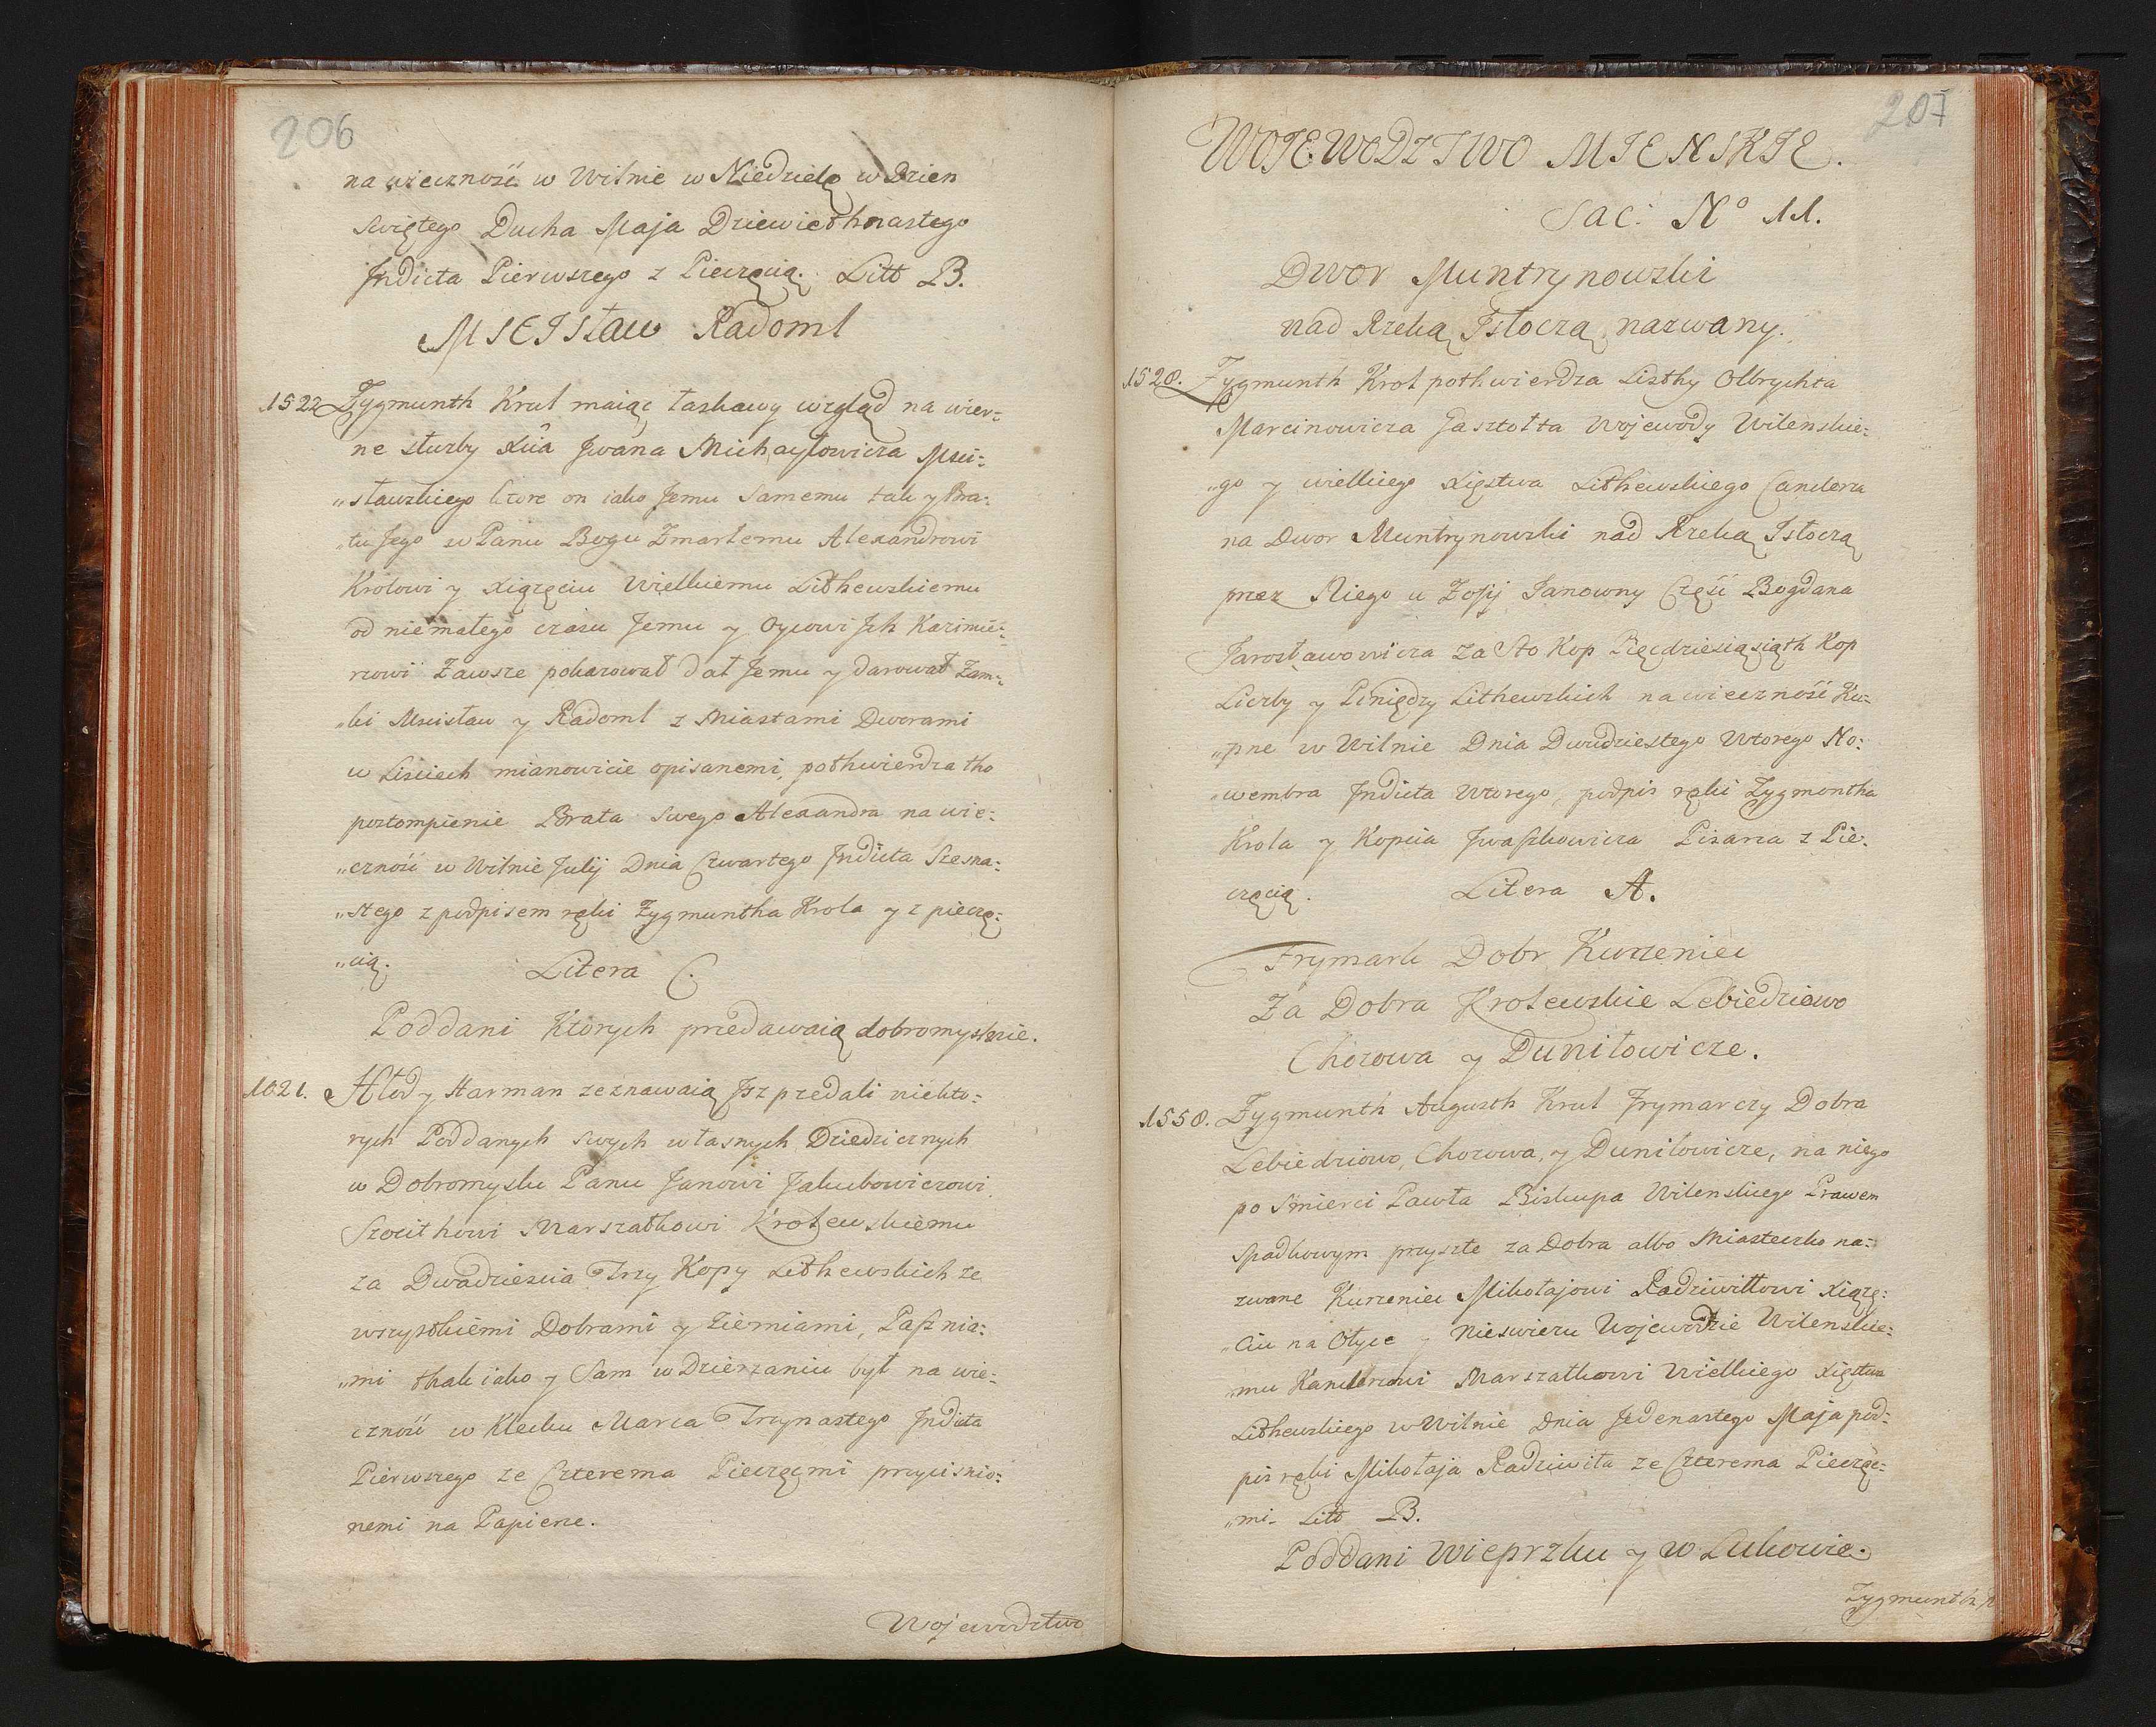 206
na wieczność w Wilnie w Niedzielę w Dzien
Swiętego Ducha Maja Dziewiethnastego
Indicta Pierwszego z Pieczęcią. Litt B.
MSCISław Radoml
1522 Zygmunth Krul maiąc łaskawy wzgląd na wier:
ne służby Xcia Jwana Michayłowicza Msci:
„sławskiego ktore on iako Jemu Samemu tak y Bra:
„tu Jego w Panu Bogu Zmarłemu Alexandrowi
Krolowi y Xiążęciu Wielkiemu Lithewskiemu
od niemałego czasu Jemu y Oycowi Jch Kazimie:
rzowi Zawsze pokazował dał Jemu y darował Zam:
„ki Mscisław y Radoml z Miastami Dworami
w Lisciech mianowicie opisanemi, pothwierdza tho
postompienie Brata swego Alexandra na wie:
„czność w Wilnie Julij Dnia Czwartego Jndicta Szesna:
„stego z podpisem ręki Zygmuntha Krola y z pieczę:
„cią.
Litera C.
Poddani Ktorych przedawaią dobromyslnie.
1621. Hleb y Harman zeznawaią Jsz przedali niekto:
rych Poddanych swych własnych Dziedzicznych
w Dobromyslu Panu Janowi Jakubowiczowi
Szczithowi Marszałkowi Krolewskiemu
za Dwadziescia Trzy Kopy Lithewskich ze
wszystkiemi Dobrami y Ziemiami, Pasznia:
„mi thak iako y Sam w Dzierzaniu był na wie:
czność w Klecku Marca Trzynastego Jndicta
Pierwszego ze Czterema Pieczęcmi przycisnio:
nemi na Papierze.
Wojewodztwo
207
WOJEWODZTWO MIENSKIE.
Sac: Nº 11.
Dwor Muntrynowski
nad Rzeką Isłoczą nazwany.
1528. Zygmunth Krol pothwierdza Listhy Olbrychta
Marcinowicza Gasztołta Wojewody Wilenskie:
„go y wielkiego Xięstwa Lithewskiego Canclerza
na Dwor Muntrynowski nad Rzeką Isłoczą
przez Niego u Zofij Janowny Część Bogdana
Jarosławowicza za Sto Kop Pięcdziesiąsiąth Kop
Liczby y Piniędzy Lithewskich na wieczność Ku:
„pne w Wilnie Dnia Dwudziestego Wtorego No:
„wembra Jndicta Wtorego, podpis ręki Zygmontha
Krola y Kopcia Jwaszkowicza Pisarza z Pie:
częcią.
Litera A.
Frymark Dobr Kurzeniec
Za Dobra Krolewskie Lebiedziewo
Chozowa y Duniłowicze.
1558. Zygmunth Augusth Krul frymarczy Dobra
Lebiedziowo, Chozowa, y Duniłowicze, na niego
po Smierci Pawła Biskupa Wilenskiego Prawem
Spadkowym przyszłe za Dobra albo Miasteczko na:
zwane Kurzeniec Mikołajowi Radziwiłłowi Xiążę:
„ciu na Ołyce y Nieswieżu Wojewodzie Wilenskie:
„mu Kanclerzowi Marszałkowi Wielkiego Xięstwa
Lithewskiego w Wilnie Dnia Jedenastego Maja pod:
pis ręki Mikołaja Radziwiła ze Czterema Pieczęc:
„mi. Litt B.
Poddani Wieprzku y w Lukowie.
Zygmunth